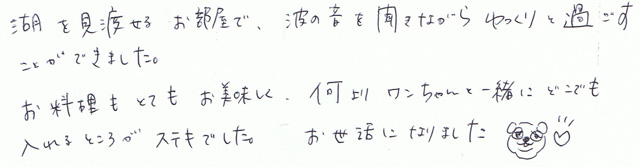 湖を見渡せる お部屋で、波の音を聞きながら ゆっくりと過ごす
ことができました。
お料理もとても お美味しく、何より ワンちゃんと一緒に どこでも
入れるところが ステキでした。 お世話になりました